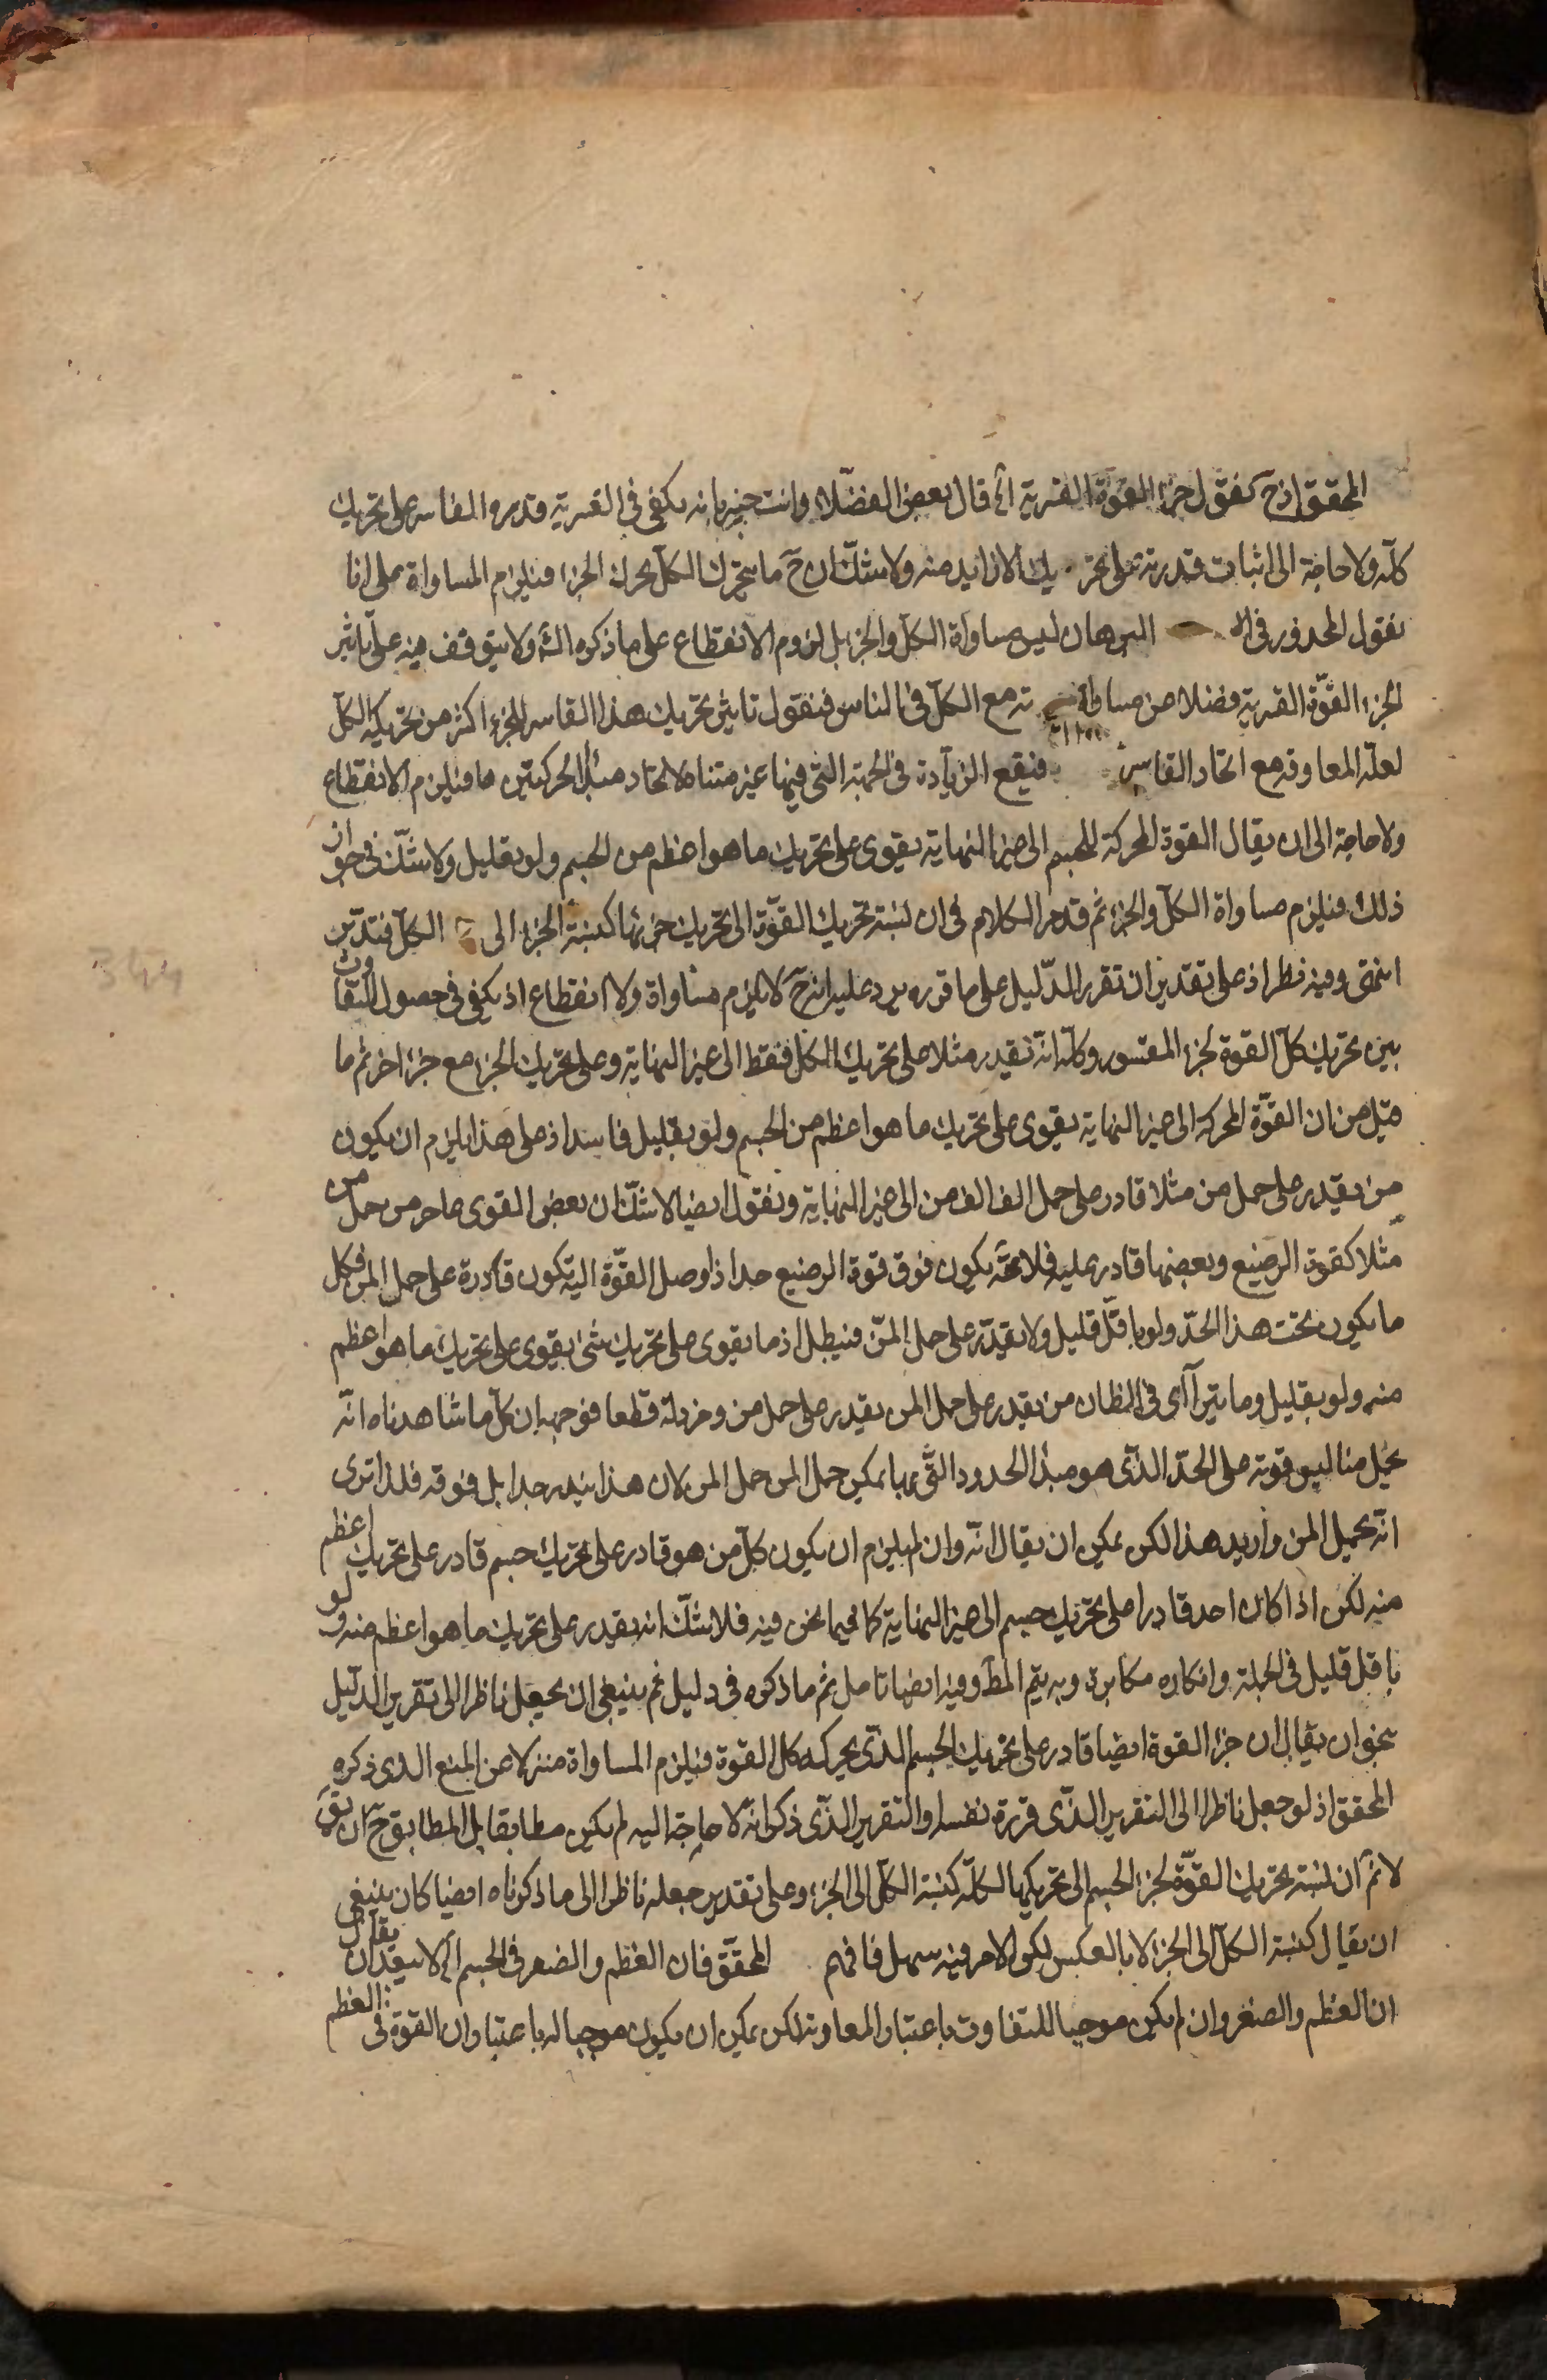 المحقق اذ ح نقول جزء القوة القسرية اه قال بعض الفضلاء وانت خبير بانه يكفى فى القسرية قدرة القاسر على تحريك
كله ولا حاجة الى اثبات قدرته على تحريك الازايد منه ولا شك ان ح ما يتحرك الكل يحرك الجزء فيلزم المساواة على انا
نقول المحذور فى البرهان ليس مساواة الكل والجزء بل لزوم الانقطاع على ما ذكره الش ولا يتوقف فيه على تاثير
لجزء القوة القسرية فضلا من مساواته مع الكل فى الناس فنقول تاثير تحريك هذا القاسر للجزء اكثر من تحريكه الكل
لعلة المعاوقه مع اتحاد القاسر فيقع الزيادة فى الجهة التى فيها غير متناه لاتحاد مبدأ الحركتين ما فيلزم الانقطاع
ولا حاجة الى ان يقال القوة المحركة للجسم الى غير النهاية يقوى على تحريك ما هو اعظم من الجسم ولو بقليل ولا شك فى جواز
ذلك فيلزم مساواة الكل والجزء ثم قد مر الكلام فى ان نسبة تحريك القوة الى تحريك جزئها كنسبة الجزء الى الكل فتدبر
انتهى وفيه نظر اذ على تقدير ان تقرر الدليل على ما قرره يرد عليه انه ح لا يلزم مساواة ولا انقطاع اذ يكفى فى حصول التفاوت
بين تحريك كل القوة لجزء المقسور وكله انه نقيدر مثلا على تحريك الكل فقط الى غير النهاية وعلى تحريك الجزء مع جزء اخر ثم ما
قيل من ان القوة المحركة الى غير النهاية يقوى على تحريك ما هو اعظم من الجسم ولو بقليل فاسد اذ على هذا يلزم ان يكون
من يقدر على حمل من مثلا قادر على حمل الف الف من الى غير النهاية ونقول ايضا لا شك ان بعض القوى عاجز من حمل من
مثلا كقوة الرضيع وبعضها قادر عليه فلا محة يكون فوق قوة الرضيع حد اذا وصل القوة اليه تكون قادرة على حمل المن فكل
ما يكون تحت هذا الحد ولو باقل قليل ولا يقدر على حمل المن فيبطل اذ ما يقوى على تحريك شئ يقوى على تحريك ما هو اعظم
منه ولو بقليل وما يترآاى فى الظان من يقدر على حمل المن يقدر على حمل من وخردلة قطعا فوجهه ان كل ما شاهدناه انه
يحمل منا ليس قوته على الحد الذى هو مبدأ الحدود التى بها يمكن حمل المن حمل المن لان هذا يندر جدا بل فوقه فلذا ترى
انه يحمل المن وازيد هذا لكن يمكن ان يقال انه وان لم يلزم ان يكون كل من هو قادر على تحريك جسم قادر على تحريك اعظم
منه لكن اذا كان احد قادرا على تحريك جسم الى غير النهاية كما فيما نحن فيه فلا شك انه يقدر على تحريك ما هو اعظم منه ولو
باقل قليل فى الجملة وانكاره مكابرة وبه يتم المط وفيه ايضا تامل ثم ما ذكره فى دليل ثم ينبغى ان يجعل ناظرا الى تقرير الدليل
بنحو ان يقال ان جزء القوة ايضا قادر على تحريك الجسم الذى يحركه كل القوة فيلزم المساواة منزلا عن المنع الذى ذكره
المحقق اذ لو جعل ناظرا الى التقرير الذى قرره نفسه او التقرير الذى ذكر انه لا حاجة اليه لم يكن مطابقا بل المطابق ح ان يق
لا نم ان نسبة تحريك القوة لجزء الجسم الى تحريكها لكله كنسبة الكل الى الجزء وعلى تقدير جعله ناظرا الى ما ذكرناه ايضا كان ينبغى
ان يقال كنسبة الكل الى الجزء لا بالعكس لكن الامر فيه سهل فافهم المحقق فان العظم والصغر فى الجسم اه لا يبعد ان يقال
ان العظم والصغر وان لم يكن موجبا للتفاوت باعتبار المعاوقة لكن يمكن ان يكون موجبا له باعتبار ان القوة فى العظم